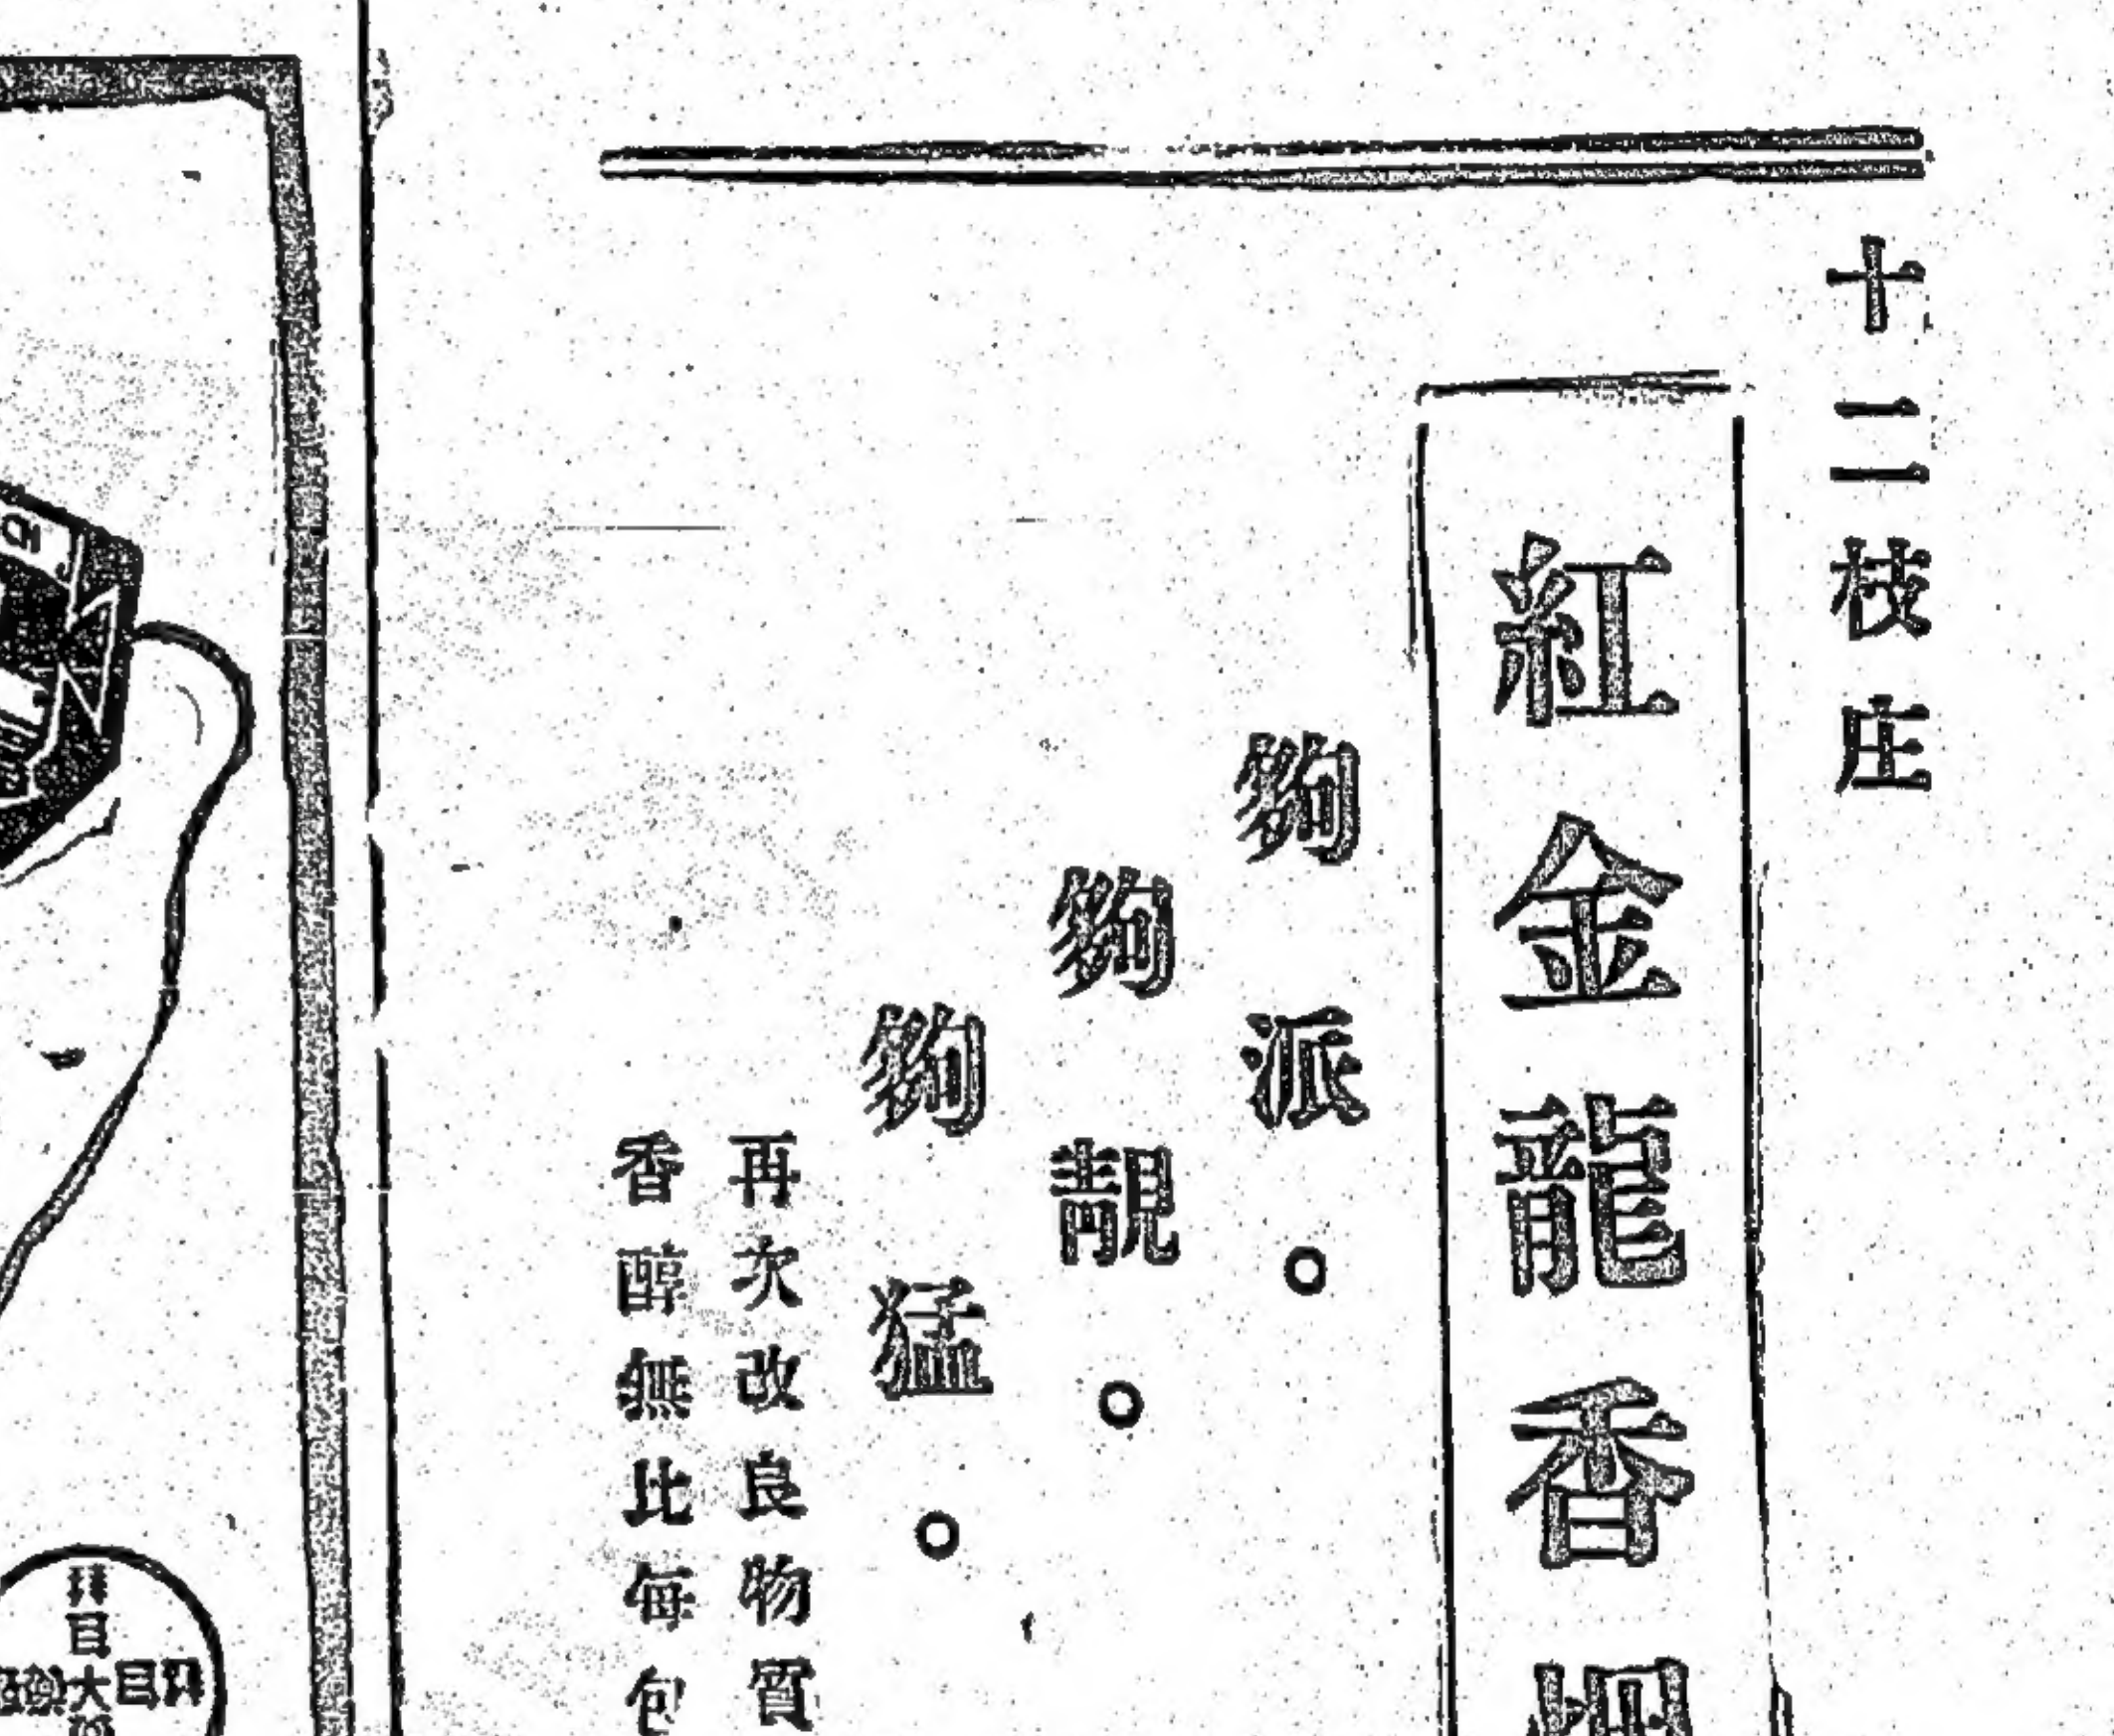 十二枝庄
紅金龍香烟
夠派。
夠靚。
夠猛。
再次改良物質
香醇無比每包